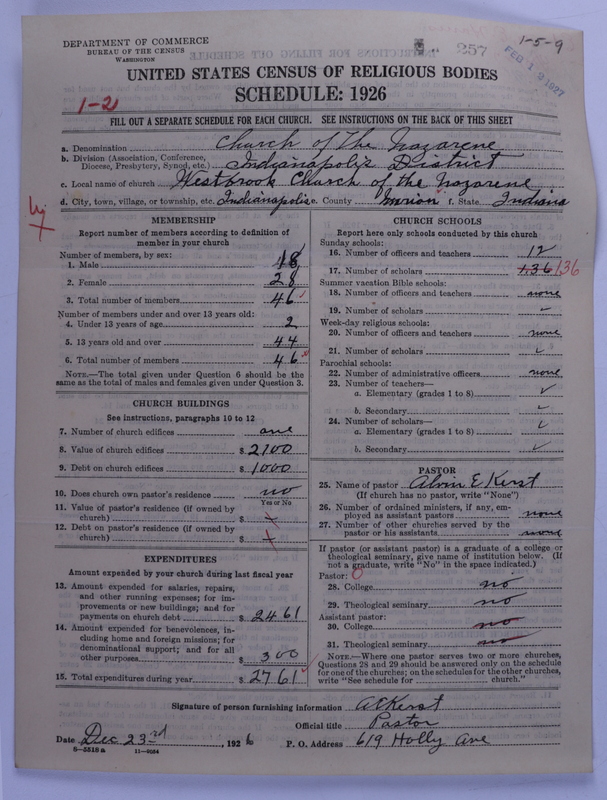 DEPARTMENT OF COMMERCE
BUREAU OF THE CENSUS
WASHINGTON
257
1-5-9
FEB 12 1927
UNITED STATES CENSUS OF RELIGIOUS BODIES
SCHEDULE: 1926
1-2
FILL OUT A SEPARATE SCHEDULE FOR EACH CHURCH. SEE INSTRUCTIONS ON THE BACK OF THIS SHEET
a. Denomination Church of The Nazarene
b. Division (Association, Conference, Diocese, Presbytery, Synod, etc.) Indianapolis District
c. Local name of church Westbrook Church of the Nazarene
d. City, town, village, or township, etc. Indianapolis e. County Marion f. State Indiana
MEMBERSHIP
Report number of members according to definition of
member in your church
Number of members, by sex:
1. Male 18
2. Female 28
3. Total number of members 46
Number of members under and over 13 years old:
4. Under 13 years of age 2
5. 13 years old and over 44
6. Total number of members 46
NOTE.—The total given under Question 6 should be
same as the total of males and females given under Question 3.
CHURCH BUILDINGS
See instructions, paragraphs 10 to 12
7. Number of church edifices one
8. Value of church edifices $ 2100
9. Debt on church edifices $ 1000
10. Does church own pastor's residence no
Yes or No
11. Value of pastor's residence (if owned by
church) $ x
12. Debt on pastor's residence (if owned by
church) $ x
EXPENDITURES
Amount expended by your church during last fiscal year
13. Amount expended for salaries, repairs,
and other running expenses; for im-
provements or new buildings; and for
payments on church debt $ 2461
14. Amount expended for benevolences, in-
cluding home and foreign missions; for
denominational support; and for all
other purposes $ 300
15. Total expenditures during year $ 2761
CHURCH SCHOOLS
Report here only schools conducted by this church
Sunday schools:
16. Number of officers and teachers 12
17. Number of scholars 136 136
Summer vacation Bible schools:
18. Number of officers and teachers none
19. Number of scholars ✓
Week-day religious schools:
20. Number of officers and teachers none
21. Number of scholars ✓
Parochial schools:
22. Number of administrative officers none
23. Number of teachers—
a. Elementary (grades 1 to 8) ✓
b. Secondary ✓
24. Number of scholars— ✓
a. Elementary (grades 1 to 8) ✓
b. Secondary ✓
PASTOR
25. Name of pastor Alvin E. Kerst
(If church has no pastor, write "None")
26. Number of ordained ministers, if any, em-
ployed as assistant pastors none
27. Number of other churches served by the
pastor or his assistants none
If pastor (or assistant pastor) is a graduate of a college or
theological seminary, give name of institution below. (If
not a graduate, write "No" in the space indicated.)
Pastor: 0
28. College no
29. Theological seminary no
Assistant pastor:
30. College no
31. Theological seminary no
NOTE.—Where one pastor serves two or more churches,
Questions 28 and 29 should be answered only on the schedule
for one of the churches; on the schedules for the other churches,
write "See schedule for church."
Signature of person furnishing information A E Kerst
Official title Pastor
Date Dec 23rd, 1926 P. O. Address 619 Holly Ave
6-5518a 11-9054